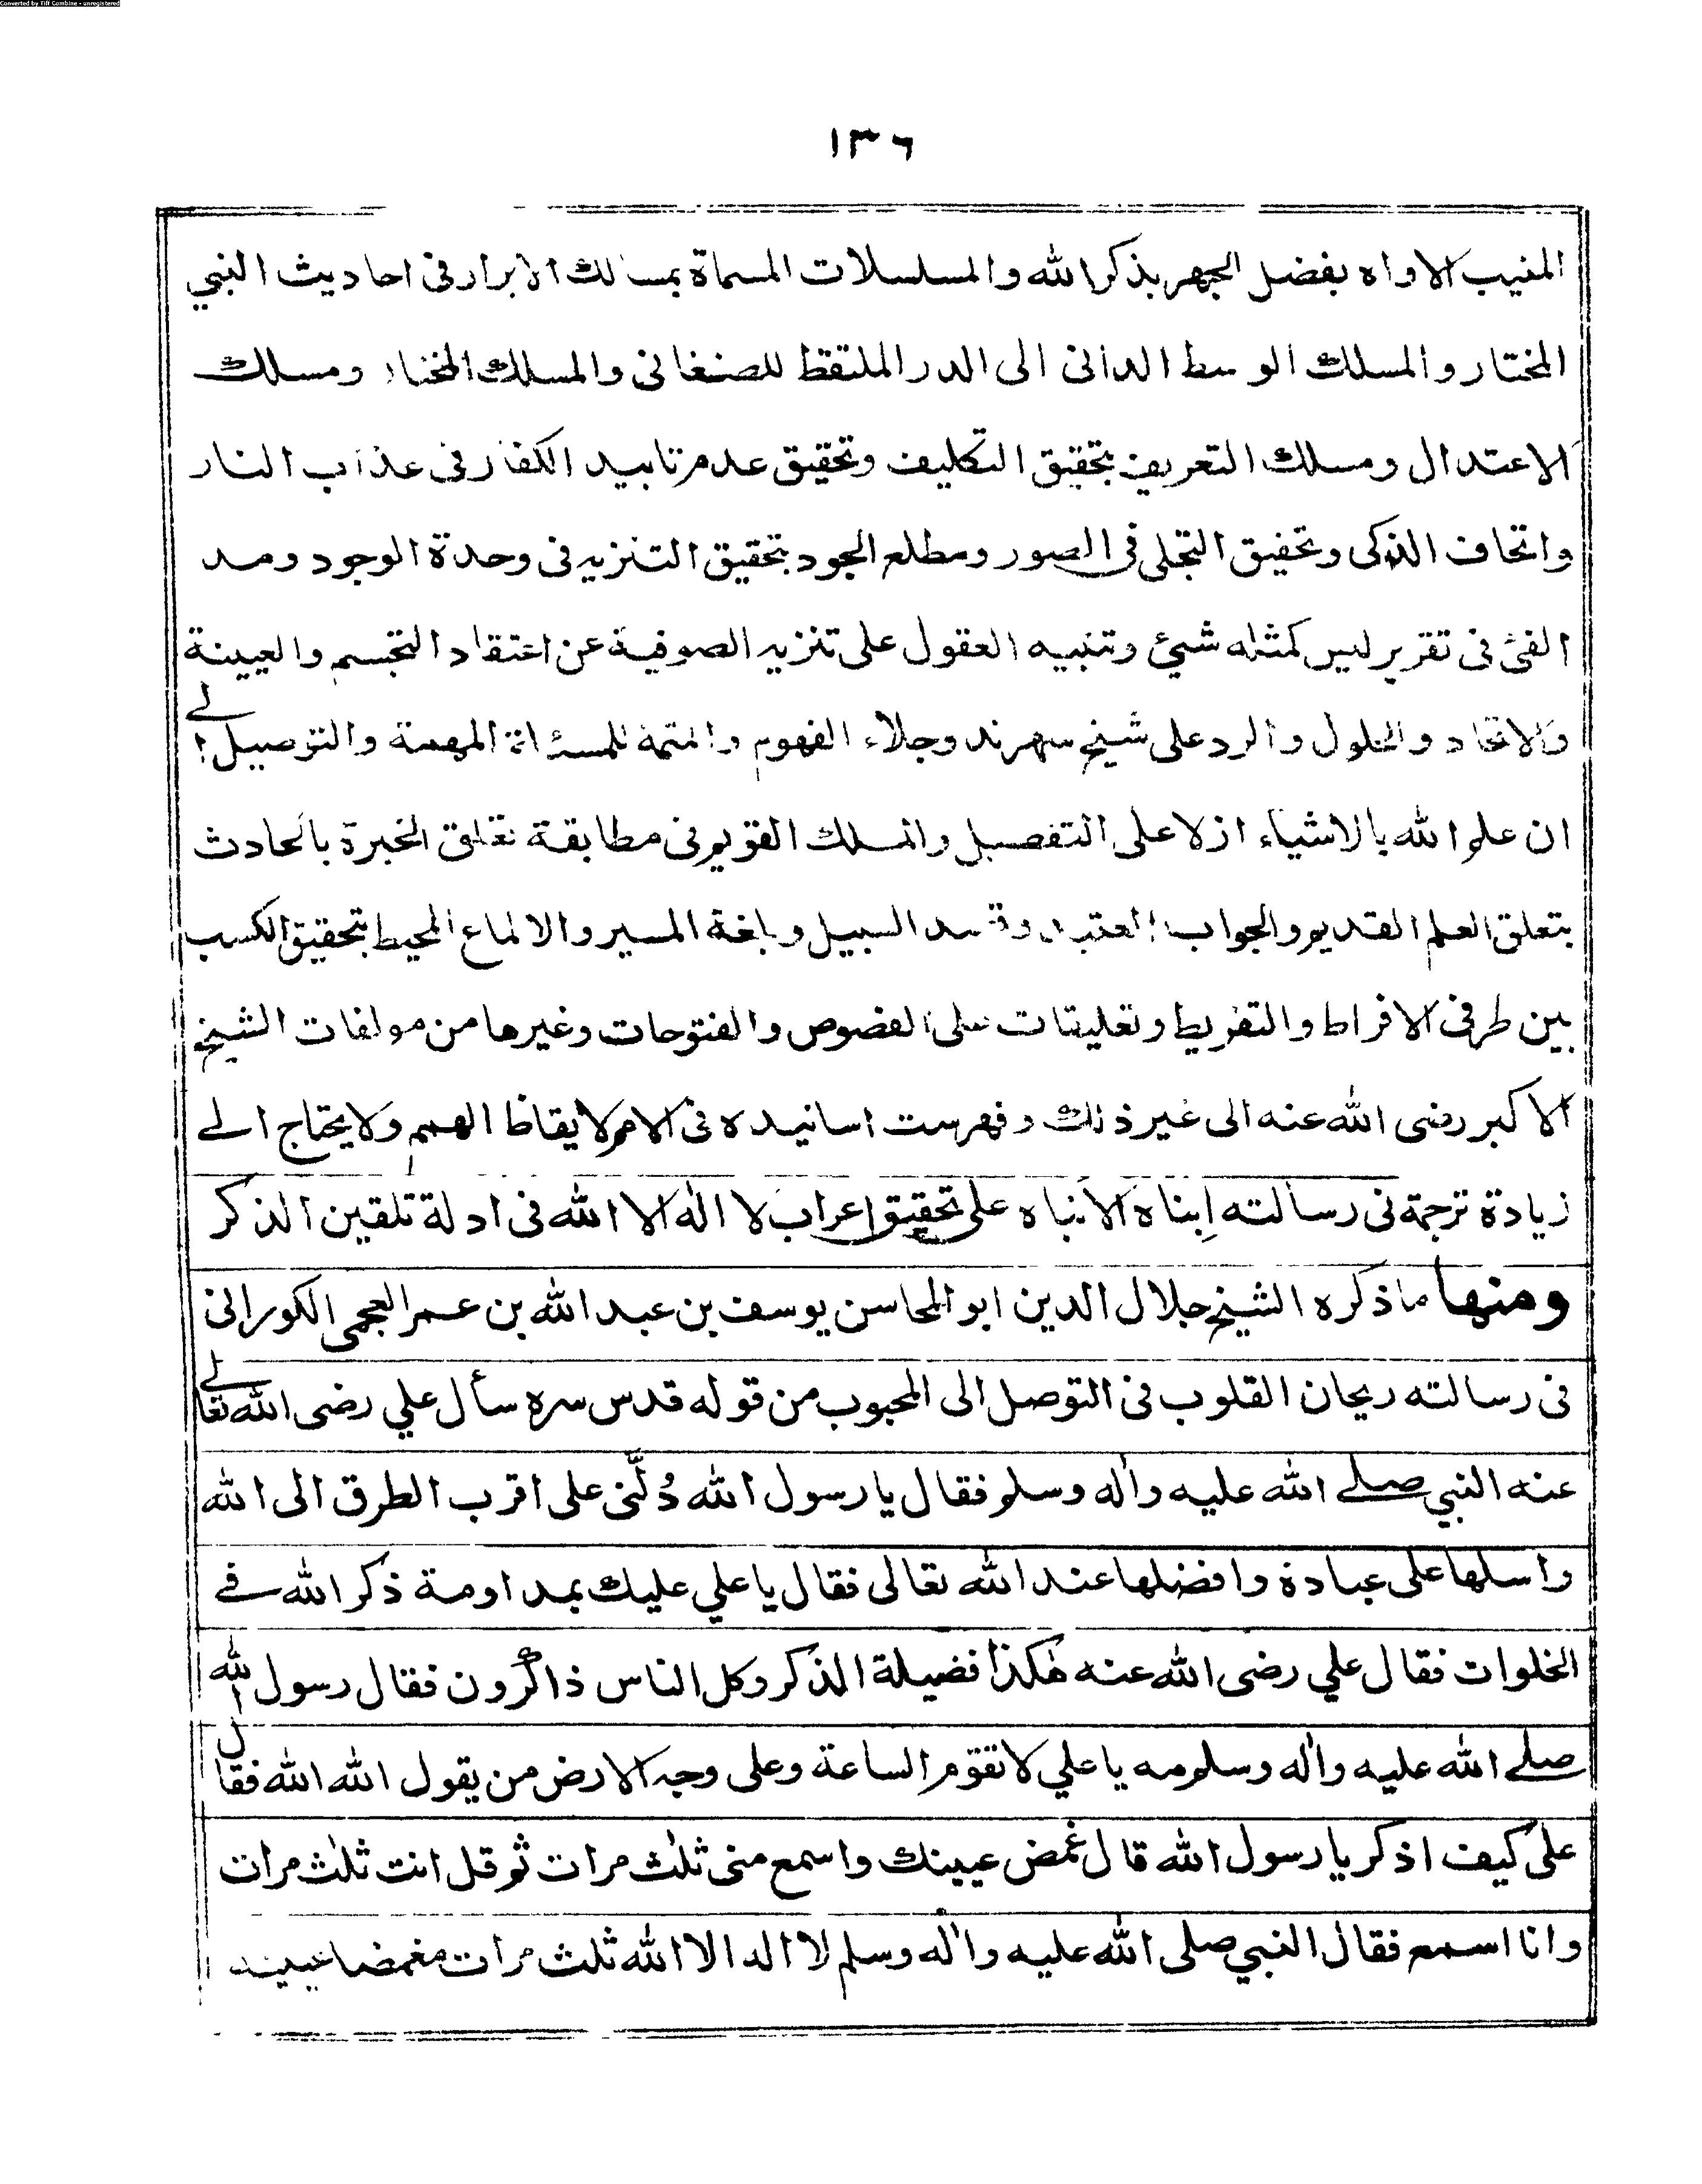 Converted by Tiff Combine - unregistered
١٣٦
المنيب الاواه بفضل الجهر بذكر الله والمسلسلات المسماة بمسالك الابرار فى احاديث النبي
المختار والمسلك الوسط الدانى الى الدر الملتقط للصنغانى والمسلك المختار ومسلك
الاعتدال ومسلك التعريف بتحقيق التكليف وتحقيق عدم تابيد الكفار فى عذاب النار
واتحاف الذكى وتحقيق التجلى فى الصور ومطلع الجود بتحقيق التنزيه فى وحدة الوجود ومد
الفئ فى تقرير ليس كمثله شيئ وتنبيه العقول على تنزيه الصوفية عن اعتقاد التجسم والعينة
والاتحاد والحلول والرد على شيخ سهرند وجلاء الفهوم والمتمة للمسئلة المهمة والتوصيل الى
ان علم الله بالاشياء ازلا على التفصيل والمسلك القويم فى مطابقة تعلق الخبرة بالحادث
بتعلق العلم القديم والجواب العتيد وقصد السبيل وبلغة المسير والالماع المحيط بتحقيق الكسب
بين طرفى الافراط والتفريط وتعليقات على الفصوص والفتوحات وغيرها من مولفات الشيخ
الاكبر رضى الله عنه الى غير ذلك وفهرست اسانيده فى الامم لايقاظ الهمم ولا يحتاج الے
زيادة ترجمة فى رسالته اِنباه الأنباه على تحقيق اعراب لا اله الا الله فى ادلة تلقين الذكر
ومنها ماذكره الشيخ جلال الدين ابو المحاسن يوسف بن عبد الله بن عمر العجمى الكورانى
فى رسالته ريحان القلوب فى التوصل الى المحبوب من قوله قدس سره سأل علي رضى الله تعالے
عنه النبي صلے الله عليه واٰله وسلم فقال يا رسول الله دُلَّنى على اقرب الطرق الى الله
واسلها على عبادة وافضلها عند الله تعالى فقال يا علي عليك بمداومة ذكر الله فے
الخلوات فقال علي رضى الله عنه هٰكذا فضيلة الذكر وكل الناس ذاكرون فقال رسول الله
صلے الله عليه واٰله وسلم مه يا علي لا تقوم الساعة وعلى وجه الارض من يقول الله الله فقال
على كيف اذكر يا رسول الله قال غمض عيينك واسمع منى ثلٰث مرات ثم قل انت ثلٰث مرات
وانا اسمع فقال النبي صلى الله عليه واٰله وسلم لا اله الا الله ثلث مرات مغمضا عينيه